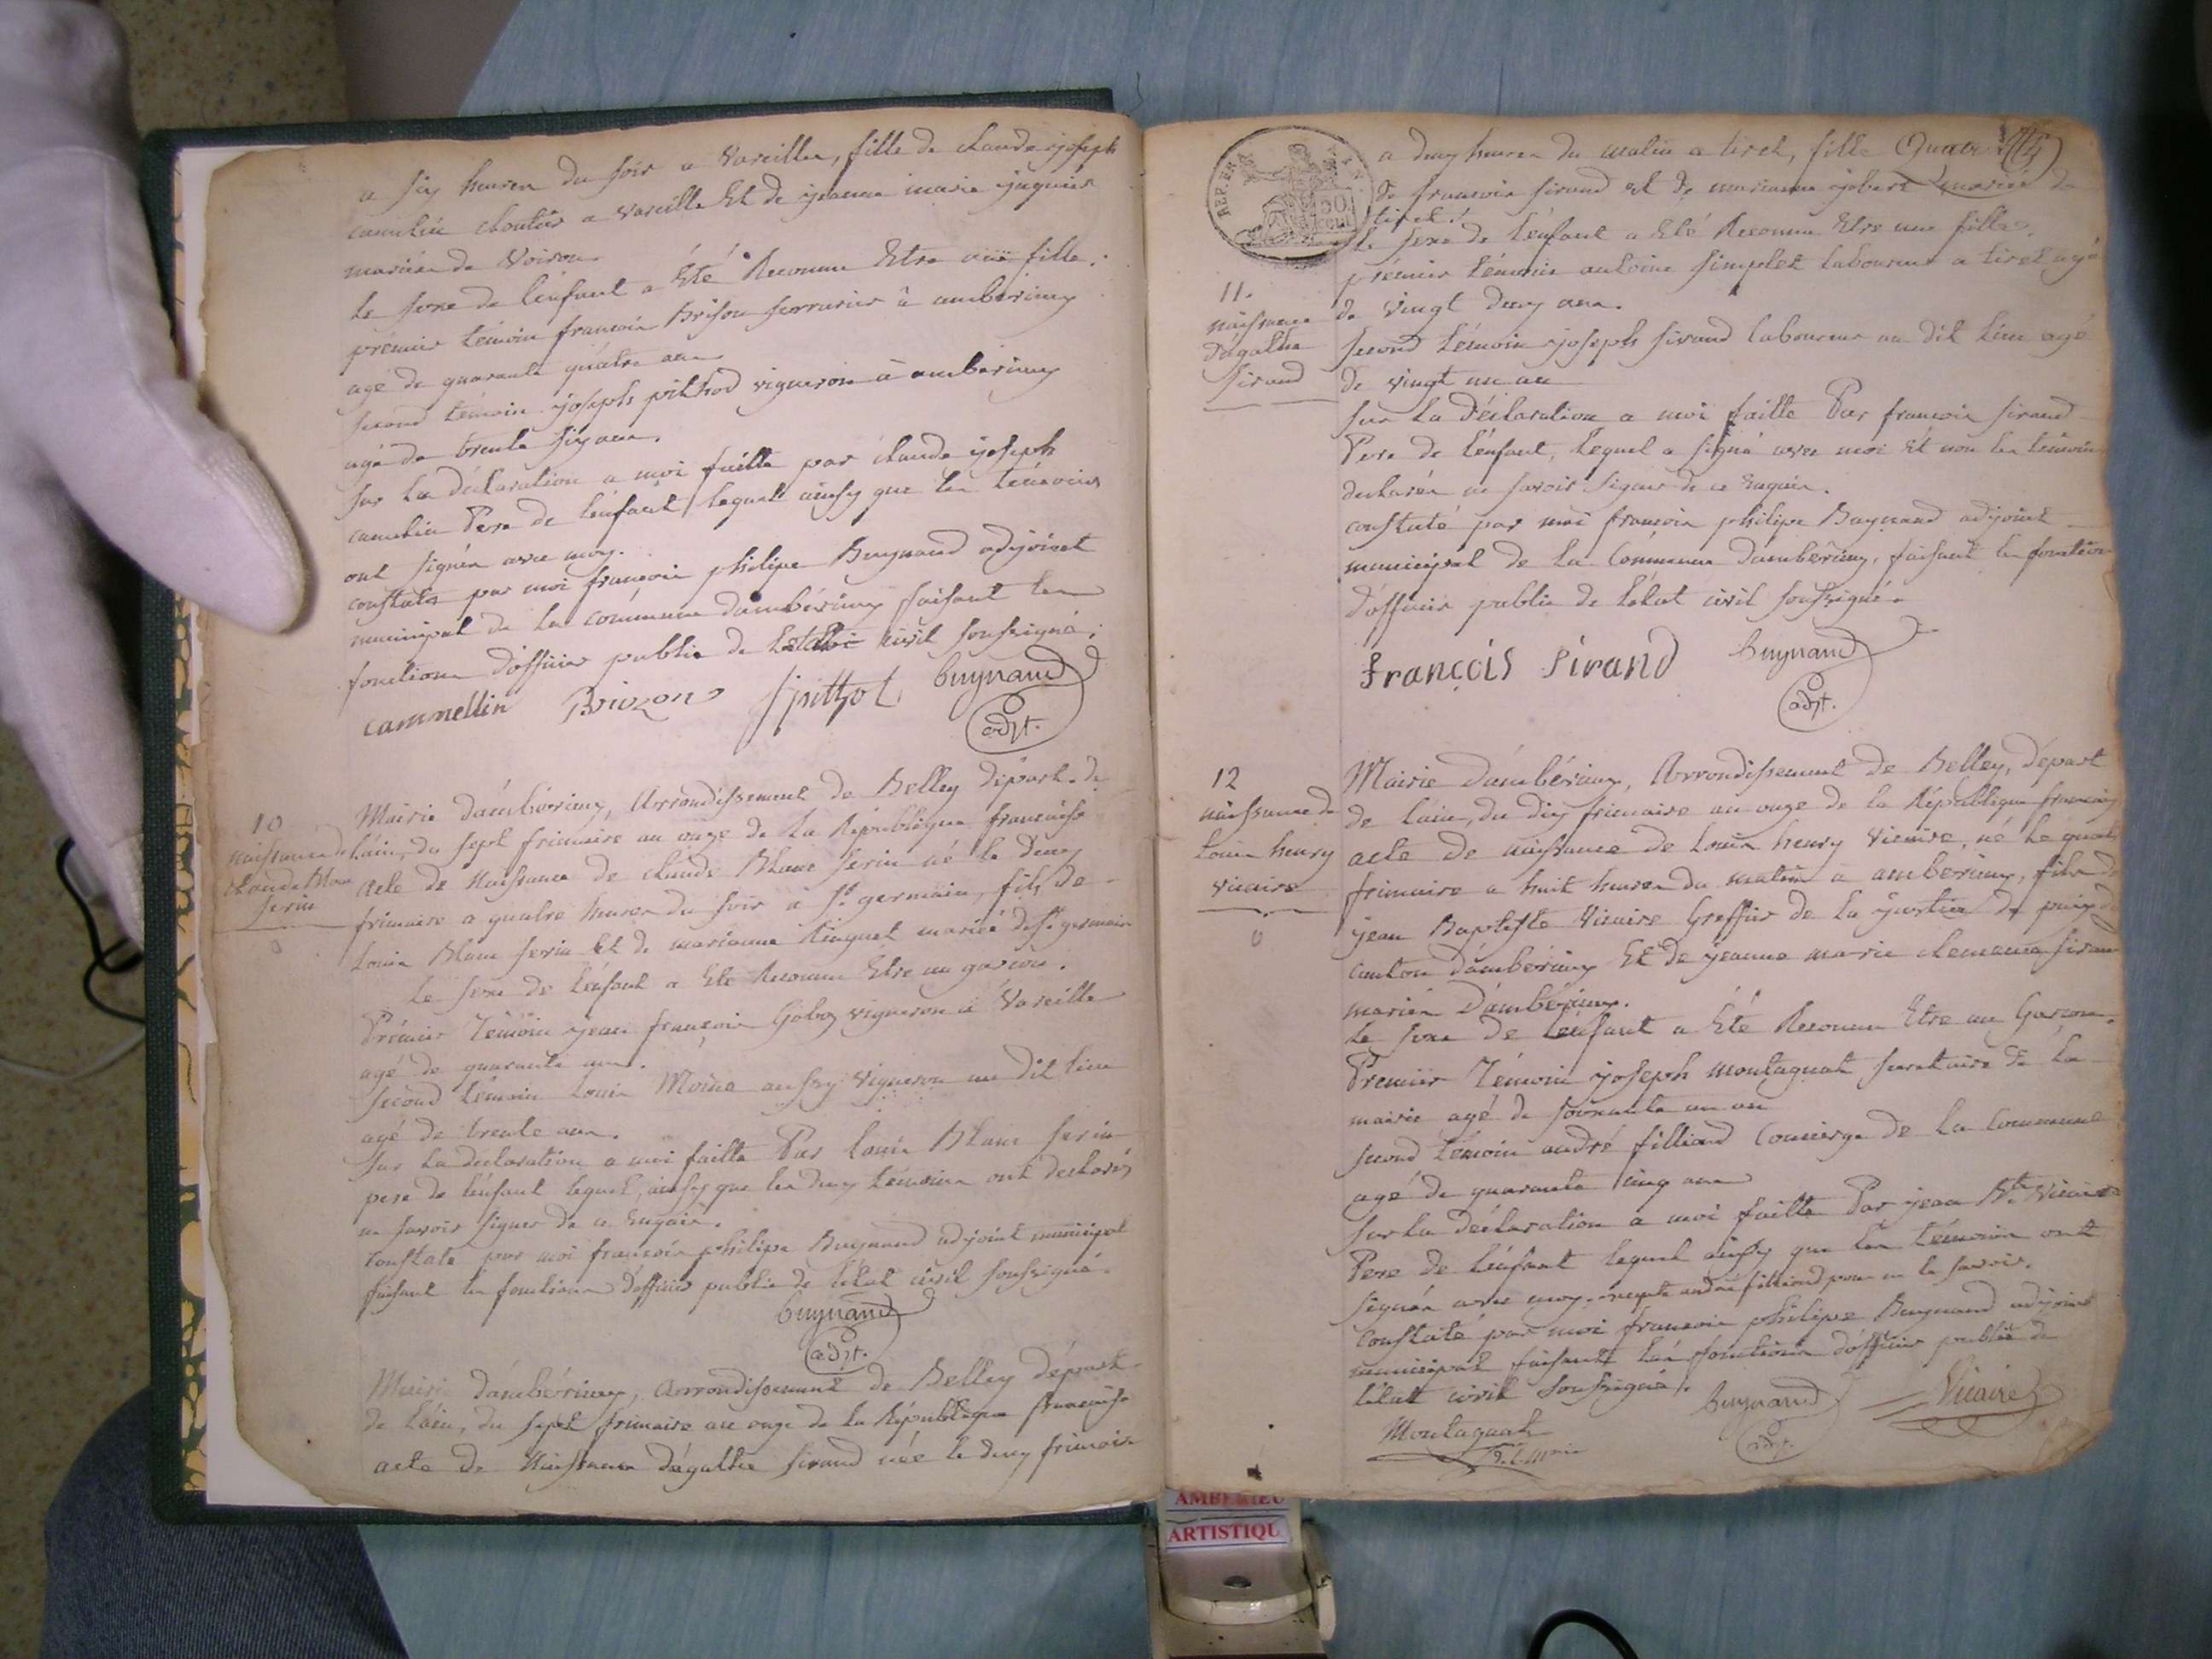 a six heures du soir a Vareilles, fille de claude joseph
camelin cloutier a vareille Et de jeanne marie juquier
mariés de Voiron
Le sexe de l'enfant a Été Reconnu Etre une fille.
prémier témoin francois Brison serrurier à amberieux
agé de quarante quatre ans
second témoin joseph pithiod vigneron à amberieux
agé de trente six ans.
sur la déclaration a moi faitte par claude joseph
camelin Pere de l'enfant, lequel ainsy que les témoins
ont signés avec moy.
constaté par moi francois philipe Buynand adjoint
municipal de la commune dambérieux faisant les
fonctions d'officier public de Létat civil soussigné.
cammellin Brizon J pithiot buynand
adjt.
10
naissance de
claude Blanc
serin
Mairie dámbérieux, Arrondissement de Belley départ. de
láin, du sept frimaire an onze de La République francaise
Acte de Naissance de claude Blanc serin né le deux
frimaire a quatre heures du soir a St. germain, fils de
Louis Blanc serin Et de marianne Ringuet mariés de St. germain
Le sexe de l'enfant a Eté Reconnu Etre un garcon.
Prémier Témoin jean françois Goboz vigneron à Vareille
agé de quarante ans.
sécond témoin Louis Moine aussy vigneron au dit lieu
agé de trente ans.
sur La declaration a moi faitte Par Louis Blanc serin
pere de l'enfant lequel, ainsy que les deux témoins ont declarés
ne savoir signer de ce Enquis.
Constaté par moi francois philipe Buynand adjoint municipal
faisant les fonctions d'officier public de l'état civil soussigné.
buynand
adjt.
Mairie dámbérieux, Arrondissement de Belley départ
de Láin, du sept frimaire an onze de la République francaise
acte de Naissance dégathe sirand née le deux frimaire
REP. FRA
50
cent
a deux heures du matin a tiret, fille Quatre
de francois sirand et de marianne jobert mariés de
tiret.
Le sexe de l'enfant a Eté Reconnu Etre une fille.
prémier témoin antoine simplet laboureur a tiret agé
de vingt deux ans.
second témoin joseph sirand laboureur au dit lieu agé
de vingt un an
sur La déclaration a moi faitte Par francois sirand
Pere de l'enfant, lequel a signé avec moi Et non les témoins
declarés ne savoir signer de ce Enquis.
constaté par moi francois philipe Buynand adjoint
municipal de la Commune dámbérieux, faisant les fonctions
d'officier public de l'état civil soussigné.
françois Sirand buynand
adjt.
11.
naissance
dágathe
sirand
12
naissance de
Louis henry
vicaire
Mairie dámbérieux, Arrondissement de Belley, départ
de láin, du dix frimaire an onze de la République francaise
acte de naissance de Louis henry vicaire, né le quatre
frimaire a huit heures du matin a amberieux, fils de
jean Baptiste Vicaire Greffier de La justice de paix du
canton dámbérieux Et de jeanne marie clemence siran
mariés D'ambérieux.
Le sexe de L'enfant a Eté Reconnu Etre un Garcon.
Premier Témoin joseph montagnat secretaire de La
mairie agé de soixante un an
second témoin andré filliard Concierge de La Commune
agé de quarante cinq ans
sur la déclaration a moi faitte Par jean Bte. Vicaire
Pere de l'enfant lequel ainsy que les témoins ont
signés avec moy. excepté andré filliard pour ne le savoir.
Constaté par moi francois philipe Buynand adjoint
municipal faisant les fonctions d'officier public de
l'état civil soussigné.
buynand Vicaire
Montagnat adjt.
AMBERIEU
ARTISTIQU